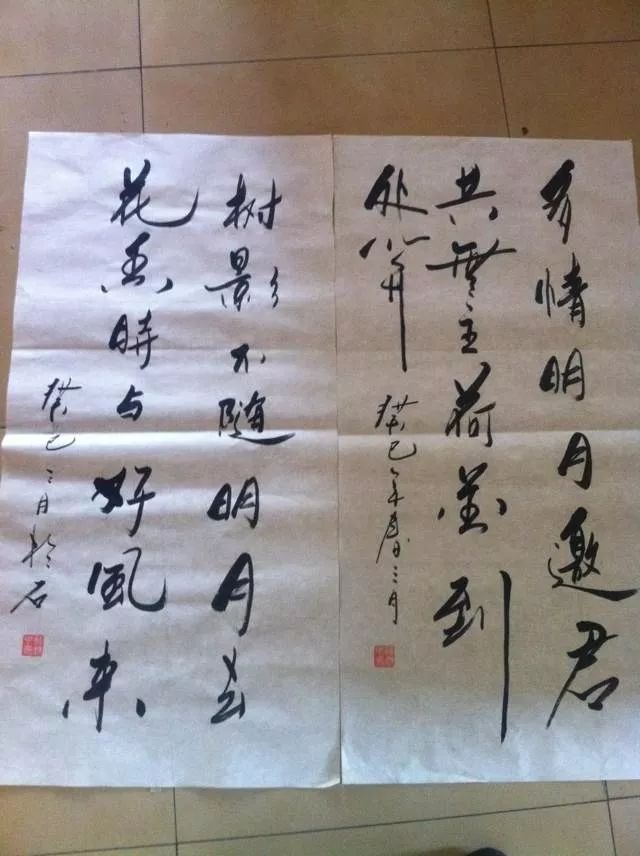 多情明月邀君
共無主荷花到
处開
癸巳年春三月
树影不随明月去
花香時与好風来
癸巳三月於石